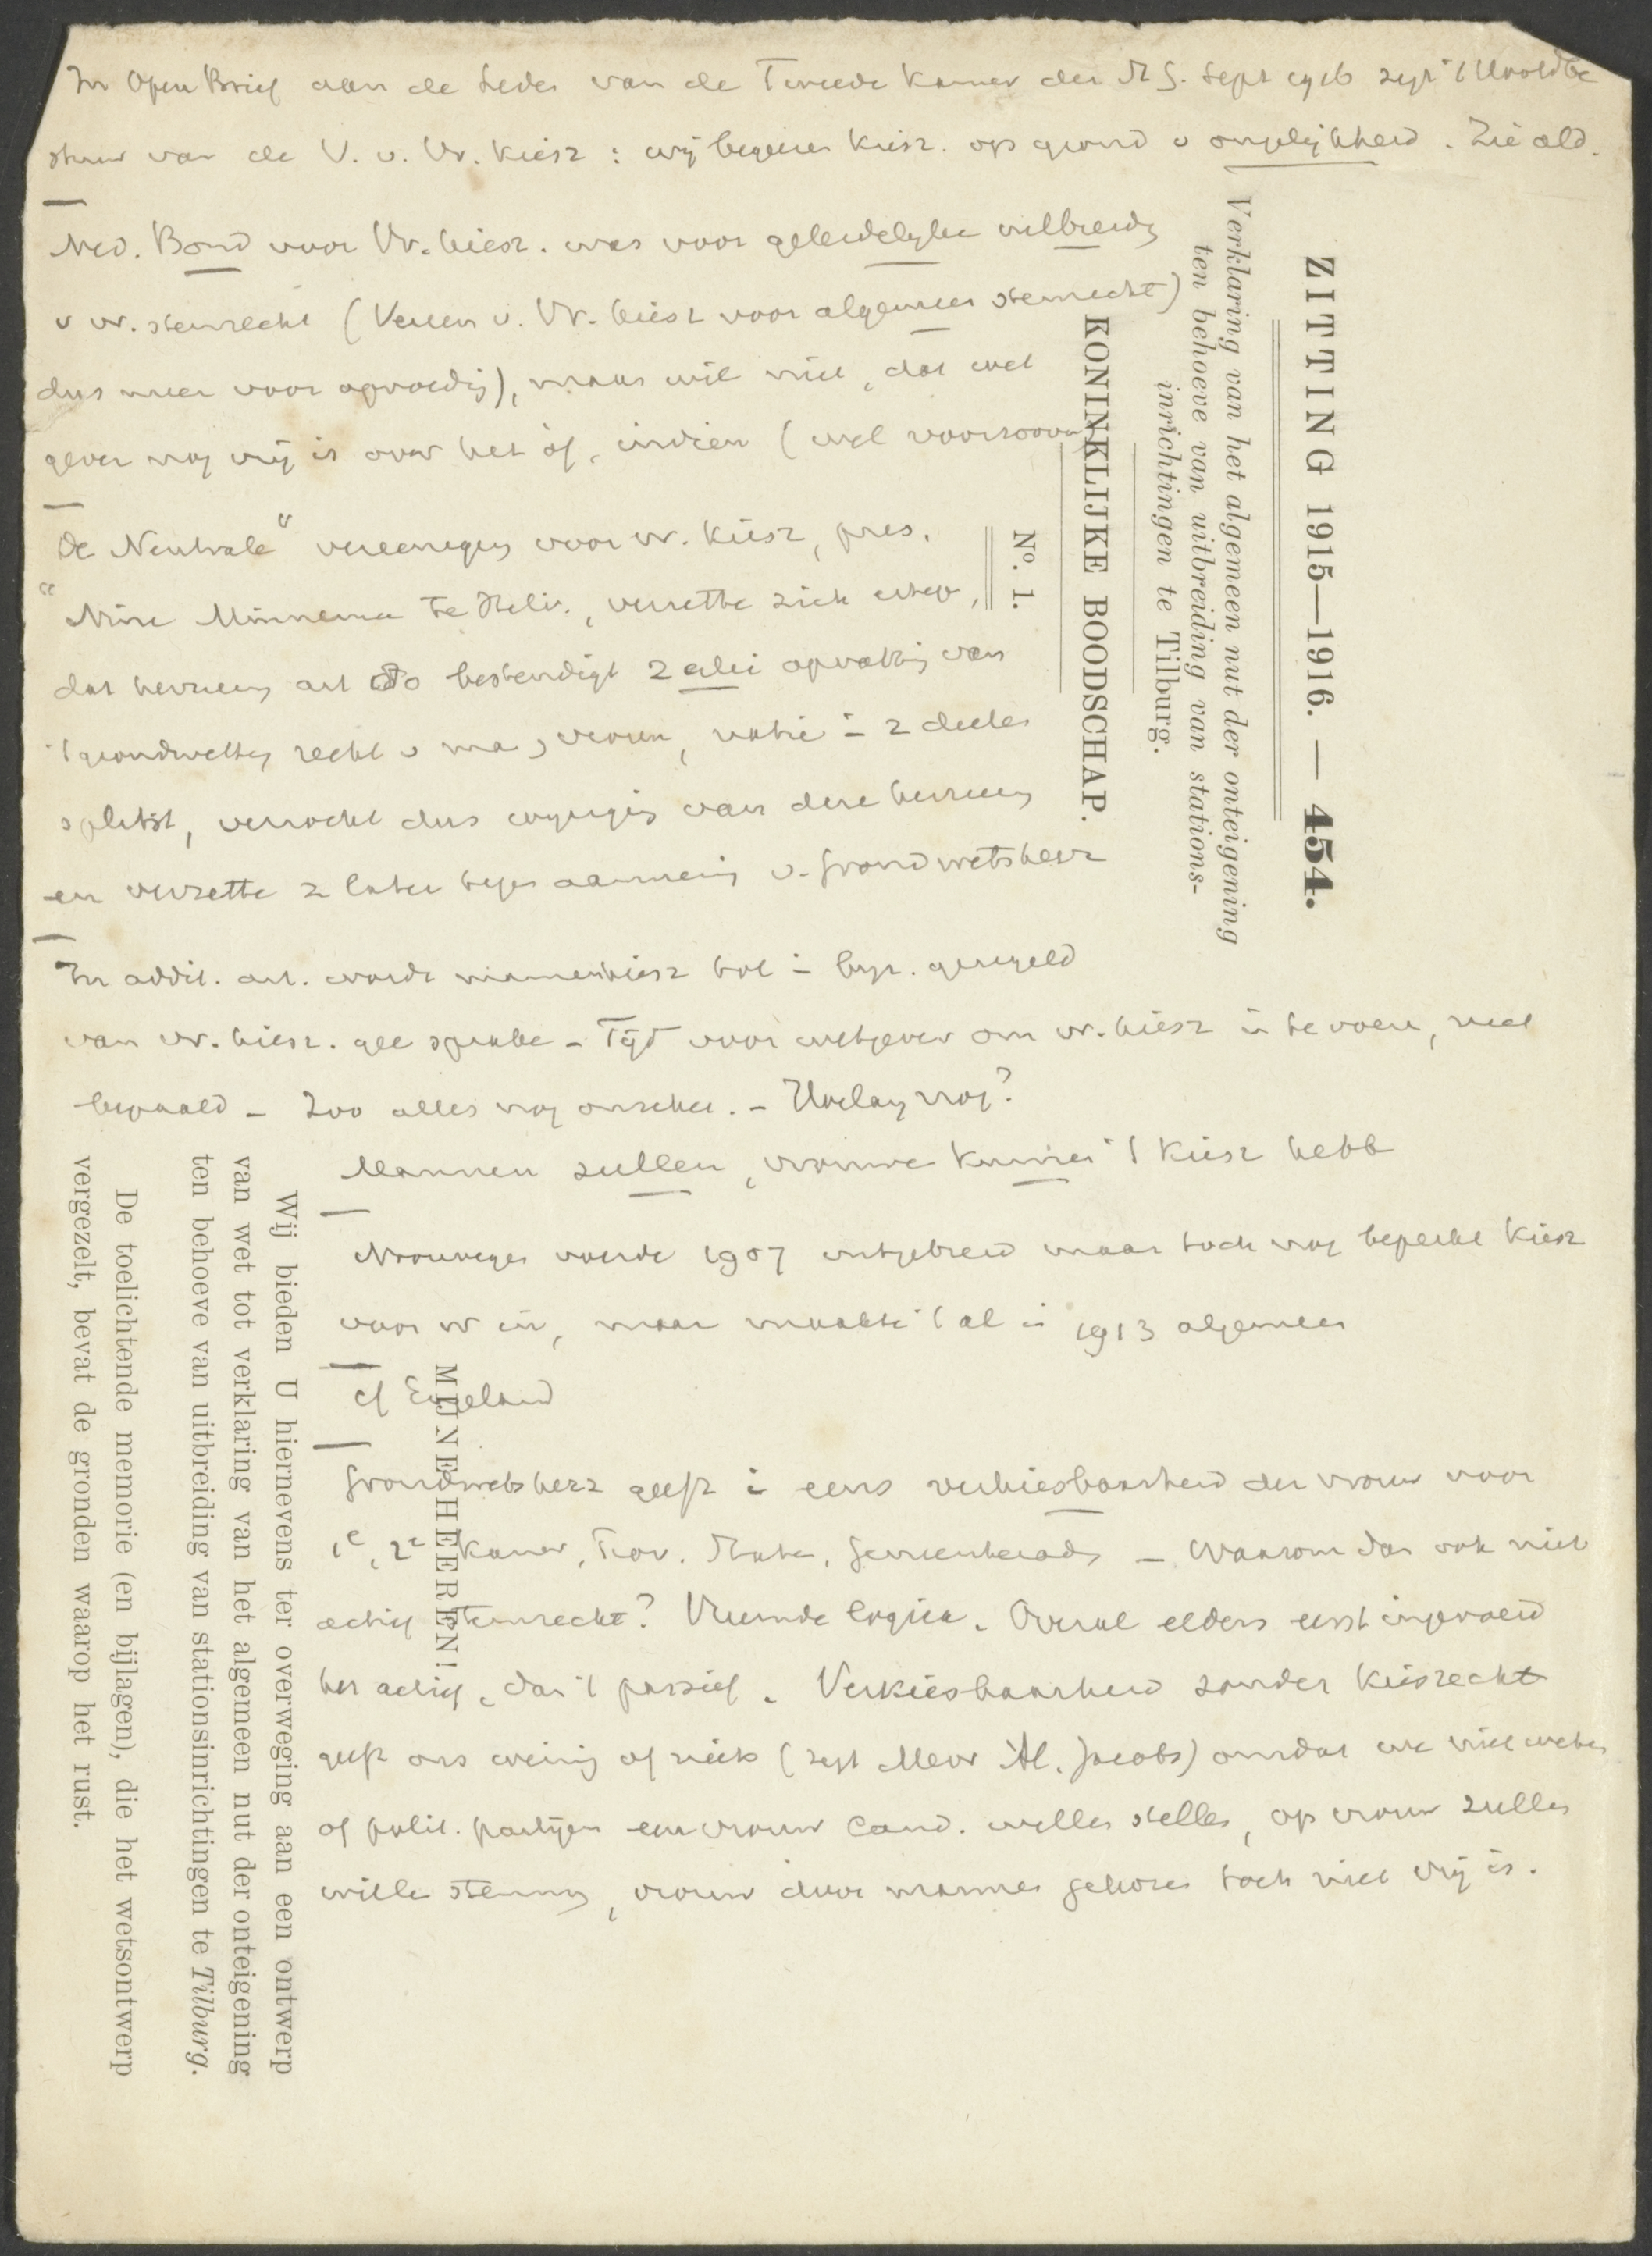 In Open Brief aan de Leden van de Tweede Kamer der St G. Sept 1916 zegt 't Hoofdbe
stuur van de V. v. Vr. Kiesr : wij begeeren Kiesr. op grond v ongelijkheid. Zie ald.
Ned. Bond voor Vr. kiesr. was voor geleidelijke uitbreidg
v vr. stemrecht (Vereen v. Vr. kiesr voor algemeen stemrecht)
dus meer voor opvoedig), maar wil niet, dat wet
gever nog vrij is over het of, indien (wel voorsoov
"De Neutrale" vereenigig voor vr. Kiesr, pres.
Nine Minnema te Helv., verzette zich erteg,
dat herzieng art 80 bestendigt z a lei opvattig van
't grondwettig recht v ma, vrouw, natie in 2 deelen
splitst, verzocht dus wijzigig van deze herzieng
en verzette z later tegen aannemig v. Grondwetsherz
In addit. art. wordt mannenkiesr tot in bijz. geregeld
van vr. kiesr. gee sprake - Tijd voor wetgever om vr. kiesr in te voere, niet
bepaald - Zoo alles nog onzeker. - Hoelang nog?
Mannen zullen, vrouwe kunnen 't Kiesr hebb
Noorwegen voerde 1907 uitgebreid maar toch nog beperkt Kiesr
voor vr in, maar maakte 't al in 1913 algemeen
cf Engeland
Grondwetsherz geeft in eens verkiesbaarheid der vrouw voor
1e, 2e Kamer, Prov. Staten, Gemeenteradg - Waarom dan ook niet
actief stemrecht? Vreemde logica. Overal elders eerst ingevoerd
het actief, dan 't passief. Verkiesbaarheid zonder kiesrecht
geeft ons weinig of niets (zegt Mevr Al. Jacobs) omdat we niet weten
of polit. partijen een vrouw cand. willen stellen, op vrouw zullen
wille stemmg, vrouw door mannen gekozen toch niet vrij is.
ZITTING 1915—1916. — 454.
Verklaring van het algemeen nut der onteigening
ten behoeve van uitbreiding van stations-
inrichtingen te Tilburg.
KONINKLIJKE BOODSCHAP.
No. 1.
MIJNE HEEREN!
Wij bieden U hiernevens ter overweging aan een ontwerp
van wet tot verklaring van het algemeen nut der onteigening
ten behoeve van uitbreiding van stationsinrichtingen te Tilburg.
De toelichtende memorie (en bijlagen), die het wetsontwerp
vergezelt, bevat de gronden waarop het rust.